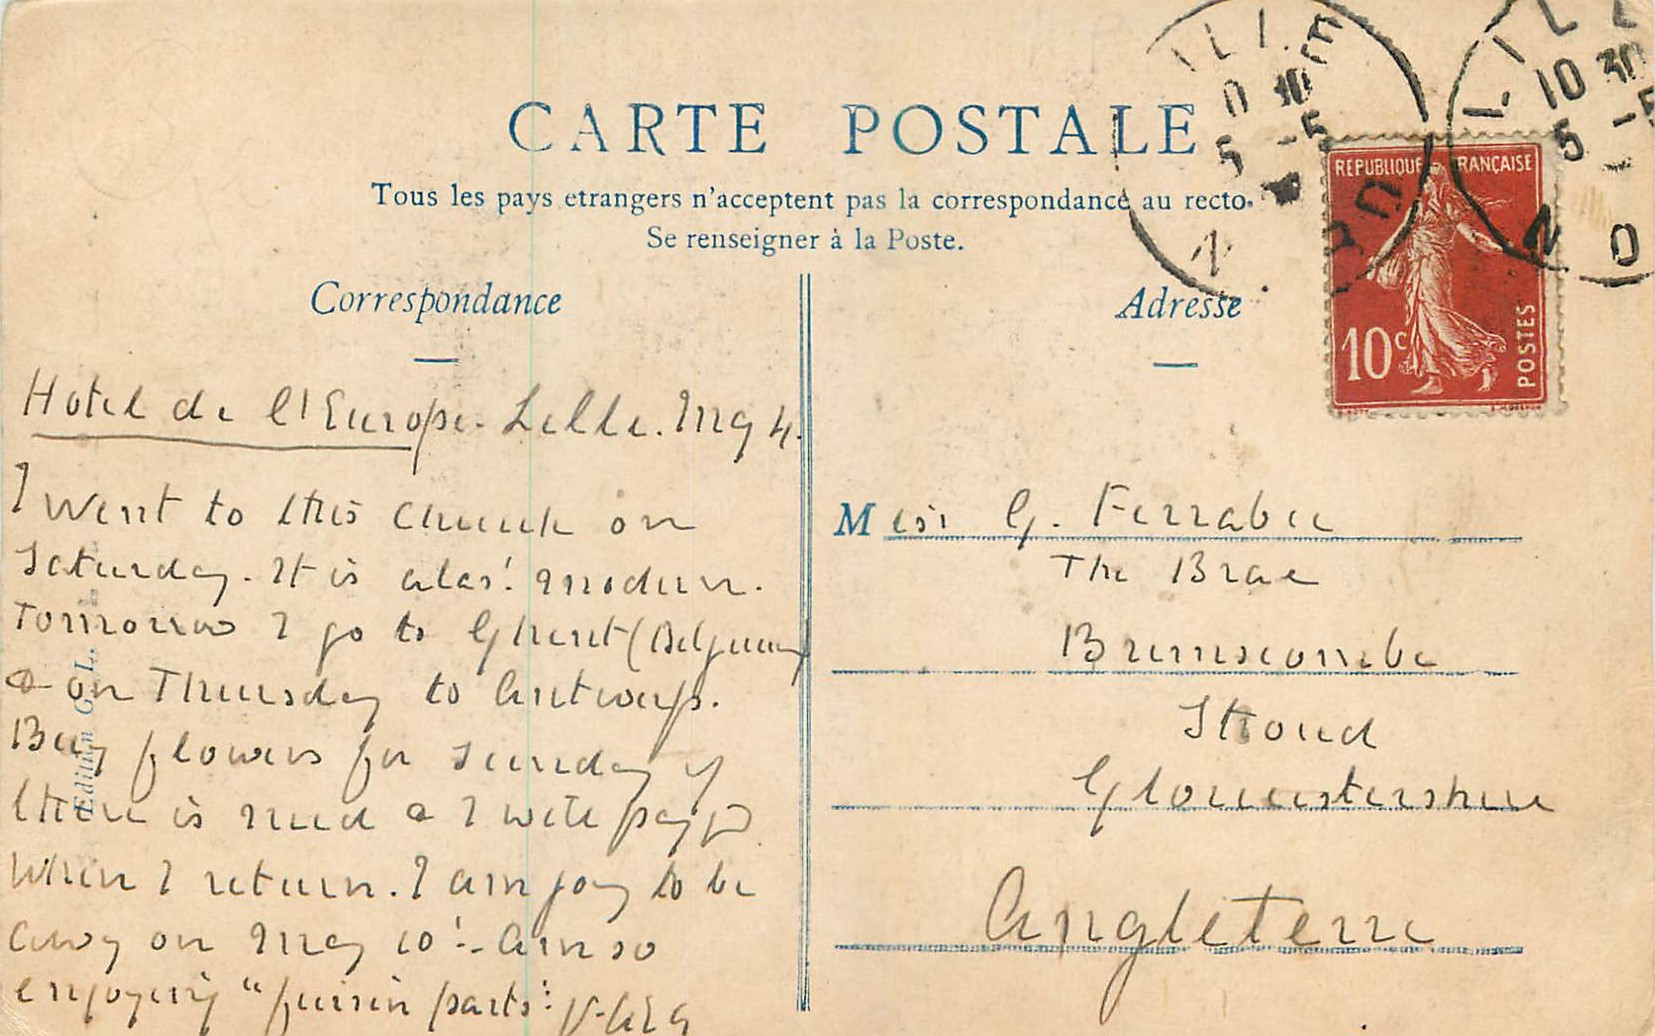 CARTE POSTALE
Tous les pays etrangers n'acceptent pas la correspondance au recto.
Se renseigner à la Poste.
Correspondance
Hotel de l'Europe. Lille. May 4.
I went to this church on
Saturday. It is alas! modern.
Tomorrow I go to Ghent (Belgium)
& on Thursday to Antwerp.
Buy flowers for Sunday if
there is need & I will pay
when I return. I am going to be
away on May 10!- Am so
enjoying "furrin parts".
Edition G. L.
Adresse
Miss G. Ferrabee
The Brae
Brimscombe
Stroud
Gloucestershire
Angleterre
LILLE
10 30
5 -5
NORD
LILLE
10 30
5 -5
NO
REPUBLIQUE FRANÇAISE
10c
POSTES